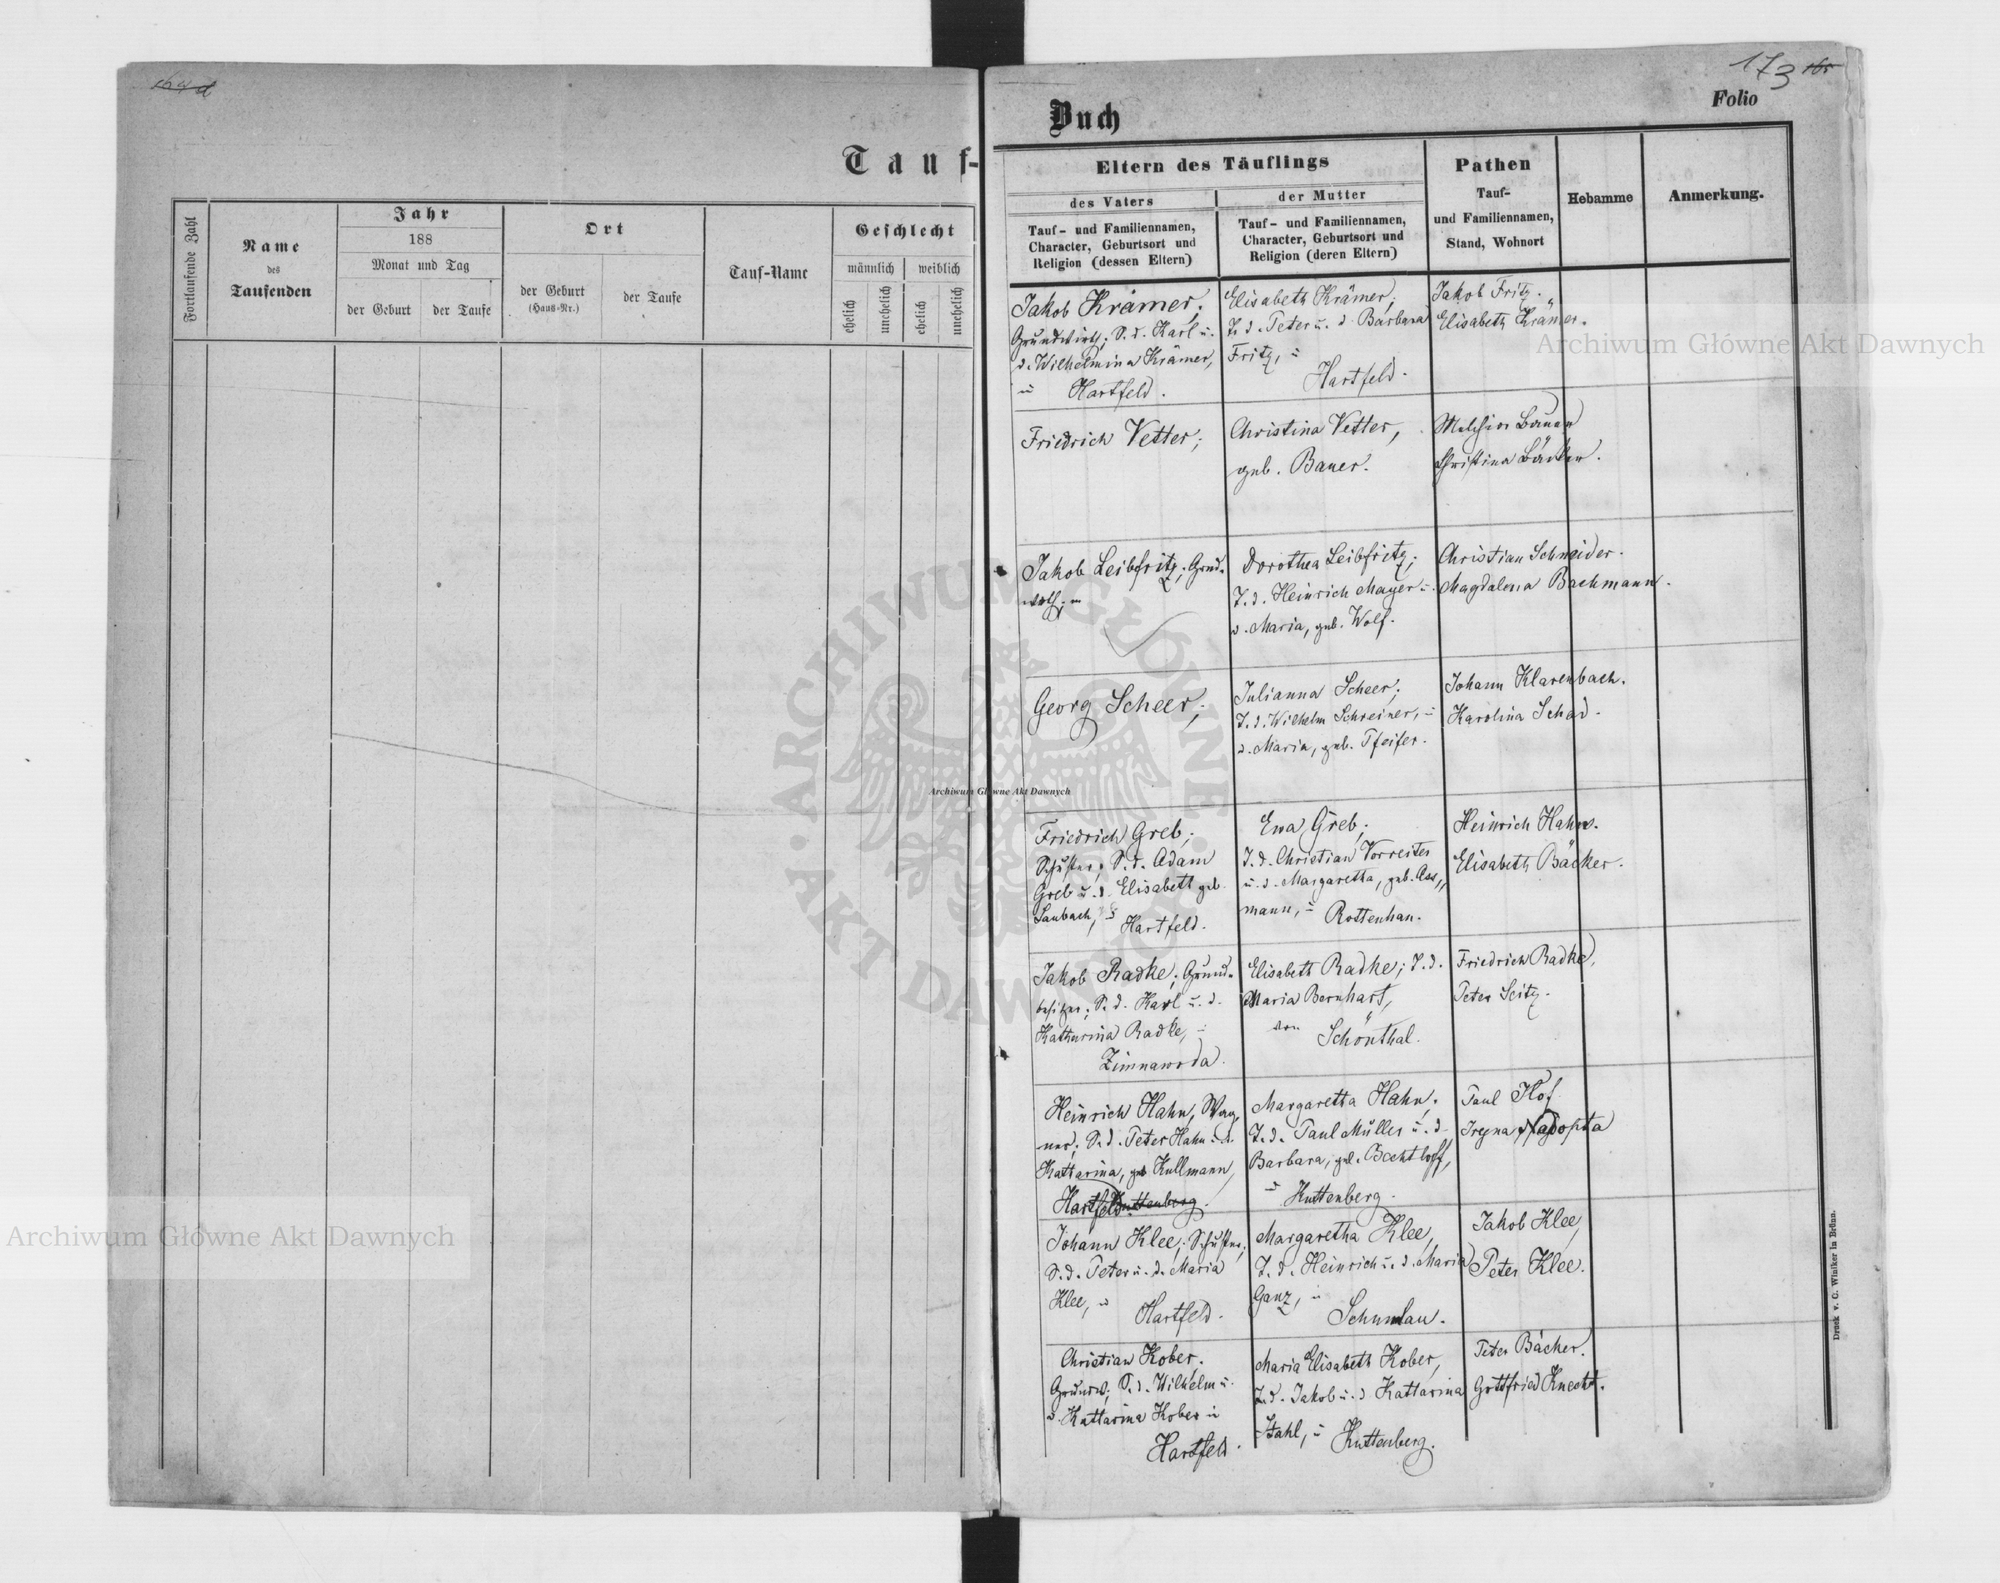 173
Folio
Tauf-
Buch
Fortlaufende Zahl
Name
des
Taufenden
Jahr
188
Monat und Tag
der Geburt
der Taufe
Ort
der Geburt
(Haus-Nr.)
der Taufe
Tauf-Name
Geschlecht
männlich
weiblich
ehelich
unehelich
ehelich
unehelich
Eltern des Täuflings
des Vaters
Tauf- und Familiennamen,
Character, Geburtsort und
Religion (dessen Eltern)
der Mutter
Tauf- und Familiennamen,
Character, Geburtsort und
Religion (deren Eltern)
Pathen
Tauf-
und Familiennamen,
Stand, Wohnort
Hebamme
Anmerkung.
Jakob Krämer,
Grundwirth; S. d. Karl u.
d. Wilhelmina Krämer,
Hartfeld.
Elisabeth Krämer,
T. d. Peter u. d. Barbara
Fritz,
Hartfeld.
Jakob Fritz.
Elisabeth Krämer.
Friedrich Vetter;
Christina Vetter,
geb. Bauer.
Christina
Jakob Leibfritz, Grund-
Dorothea Leibfritz;
T. d. Heinrich Mayer u.
d. Maria, geb. Wolf.
Christian Schneider.
Magdalena Bachmann.
Georg Scheer;
Julianna Scheer;
T. d. Wilhelm Schreiner,
d. Maria, geb. Pfeifer.
Johann Klarenbach.
Karolina Schad.
Friedrich Greb;
Schuster; S. d. Adam
Greb u. d. Elisabeth geb.
Laubach,
Hartfeld.
Eva Greb;
T. d. Christian Vorreiter
u. d. Margaretha, geb. Ass„
mann,
Rottenhan.
Heinrich Hahn.
Elisabeth Bäcker.
Jakob Radke; Grund-
besitzer; S. d. Karl u. d.
Katharina Radke,
Zimnawoda.
Elisabeth Radke; T. d.
Maria Bernhart,
von
Schönthal.
Friedrich Radke,
Peter Seitz.
Heinrich Hahn, Wag
ner; S. d. Peter Hahn u. d.
Kattarina, geb. Kullmann,
Hartfeld
Kuttenberg.
Margaretta Hahn;
T. d. Paul Müller u. d.
Barbara, geb. Bechtloff,
Kuttenberg.
Paul Hof
Johann Klee; Schuster;
S. d. Peter u. d. Maria
Klee,
Hartfeld.
Margaretha Klee,
T. d. Heinrich u. d. Maria
Ganz,
Schumlau.
Jakob Klee,
Peter Klee.
Christian Kober,
Grundw; S. d. Wilhelm u.
d. Kattarina Kober in
Hartfeld.
Maria Elisabeth Kober,
T. d. Jakob u. d. Kattarina
Stahl,
Kuttenberg.
Peter Bäcker.
Gottfried Knecht.
Druck v. G. Winiker in Brünn.
Archiwum Główne Akt Dawnych
Archiwum Główne Akt Dawnych
Archiwum Główne Akt Dawnych
ARCHIWUM GŁÓWNE AKT DAWNYCH